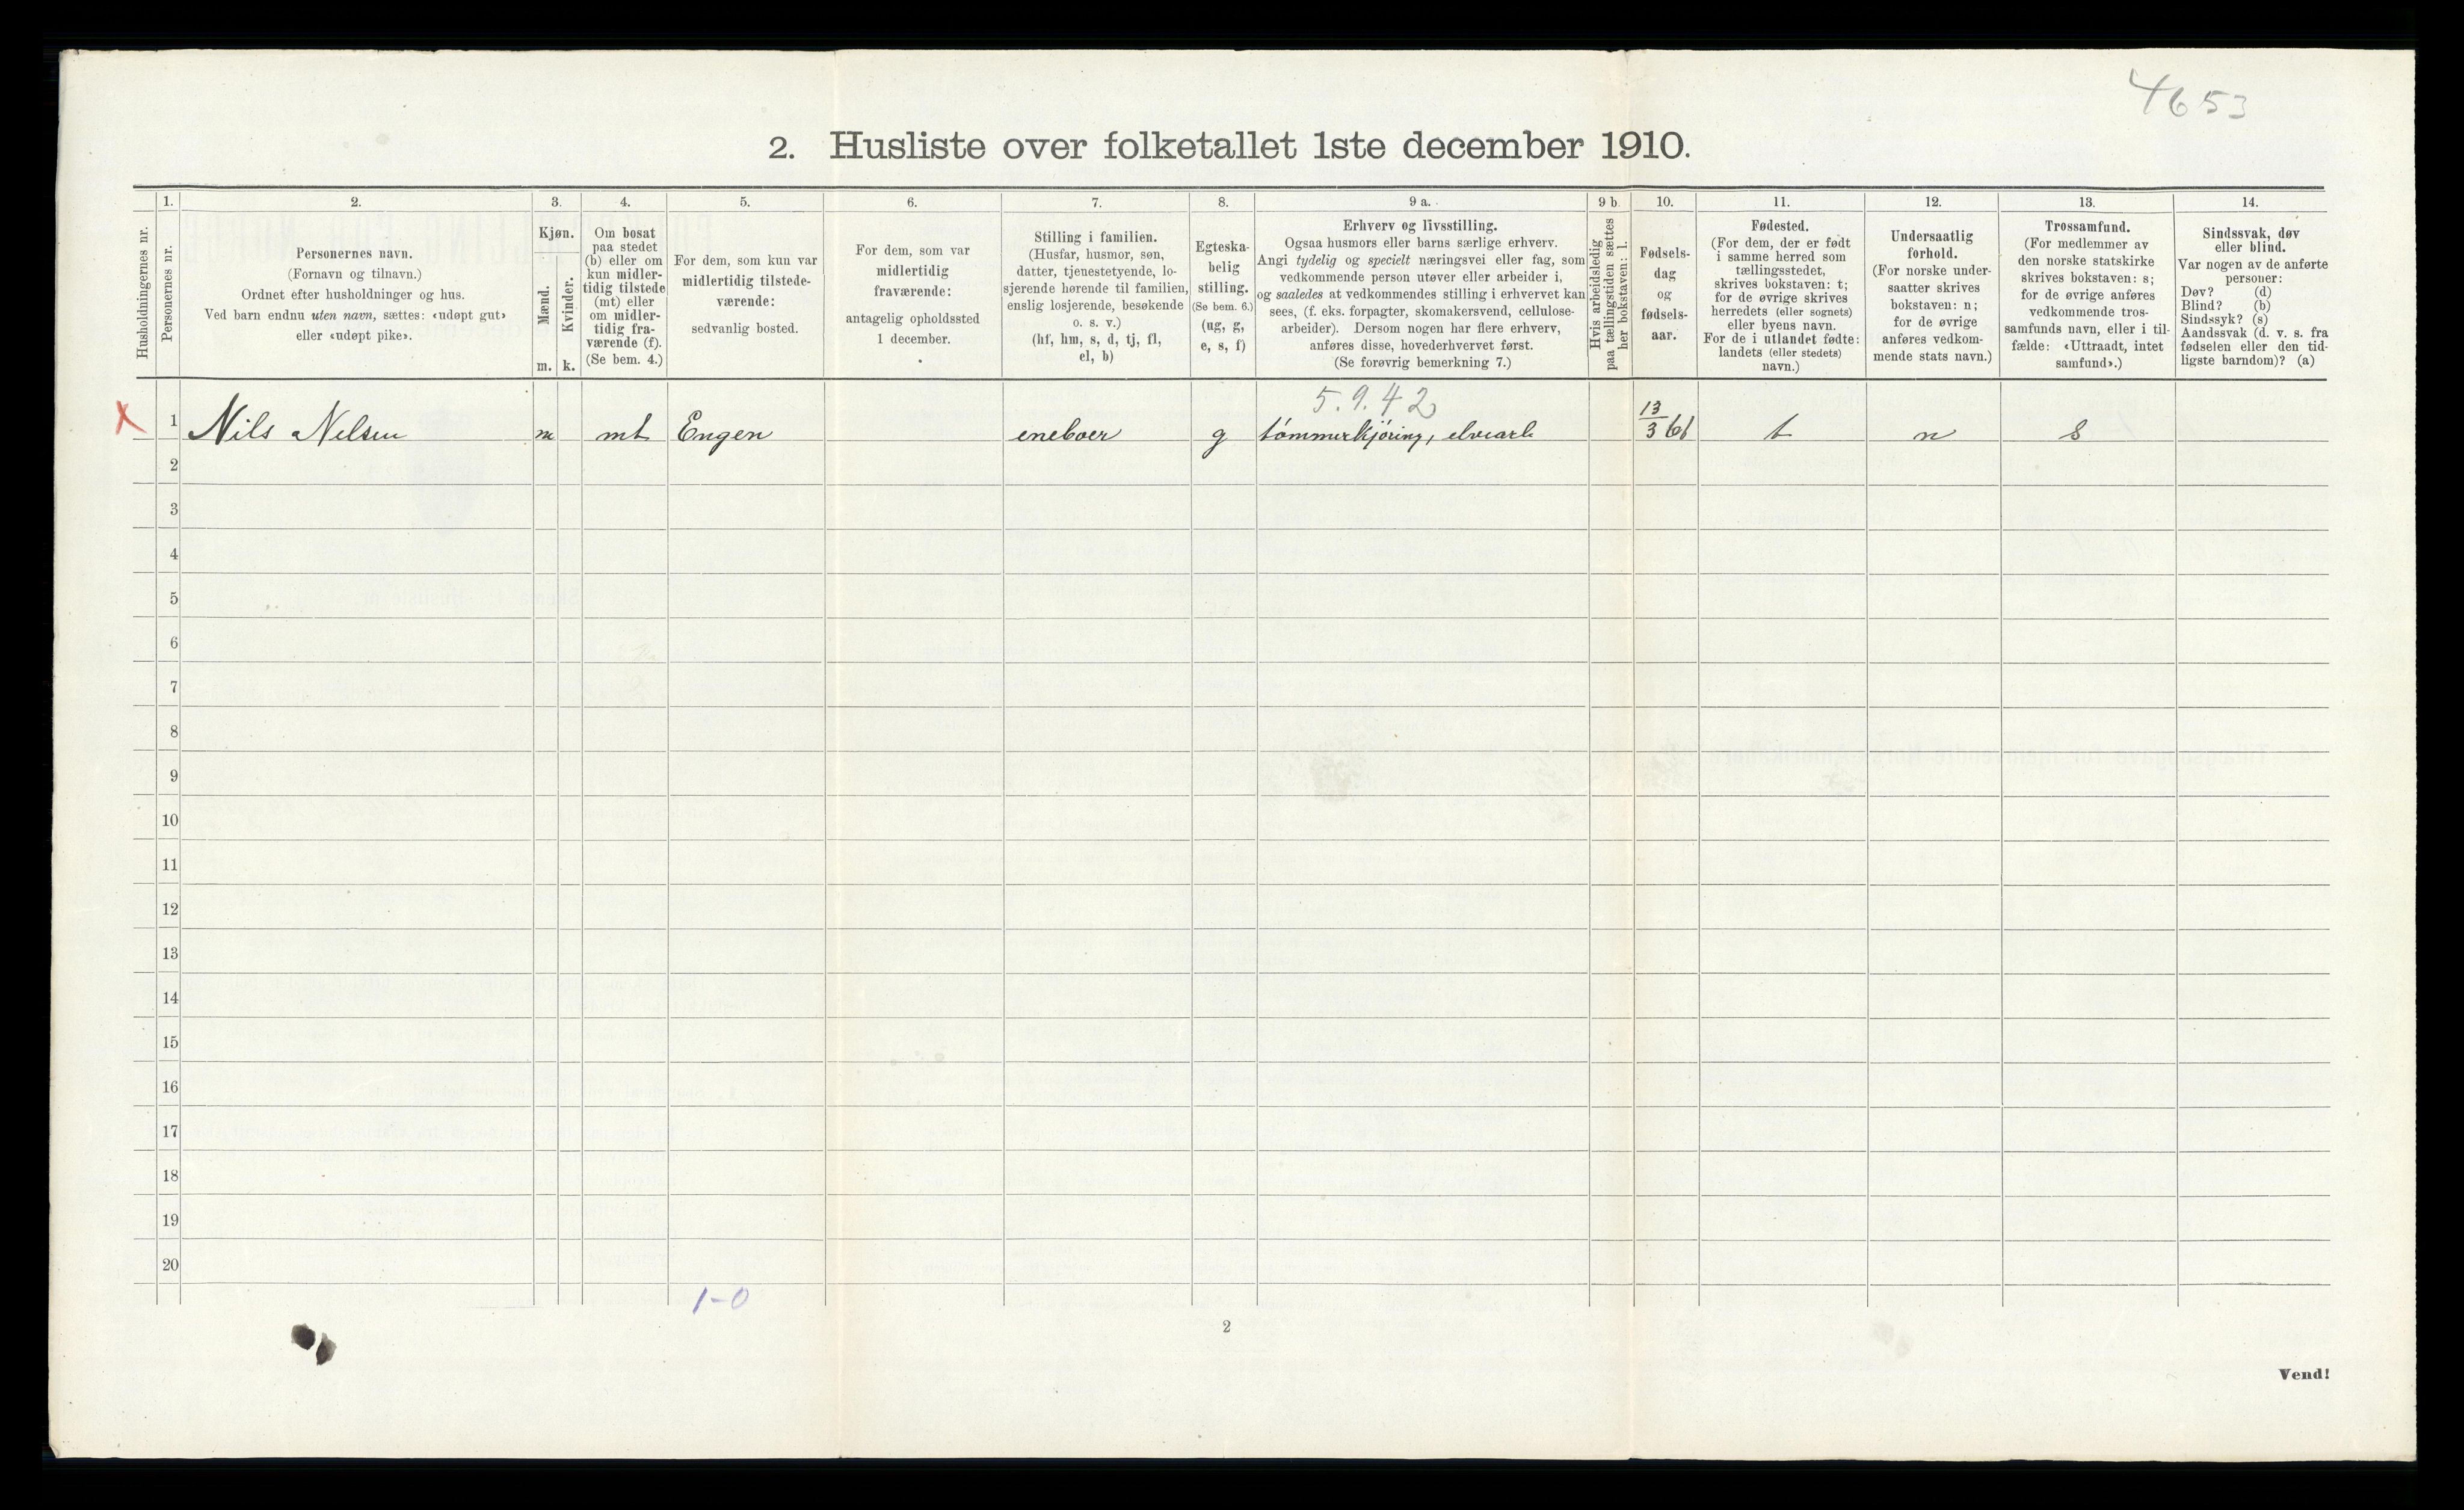 4653
2. Husliste over folketallet 1ste december 1910.
Husholdningernes nr.
1.
Personernes nr.
2.
Personernes navn.
(Fornavn og tilnavn.)
Ordnet efter husholdninger og hus.
Ved barn endnu uten navn, sættes: «udøpt gut»
eller «udøpt pike».
3.
Kjøn.
Mænd.
Kvinder.
m. k.
4.
Om bosat
paa stedet
(b) eller om
kun midler-
tidig tilstede
(mt) eller
om midler-
tidig fra-
værende (f).
(Se bem. 4.)
5.
For dem, som kun var
midlertidig tilstede-
værende:
sedvanlig bosted.
6.
For dem, som var
midlertidig
fraværende:
antagelig opholdssted
1 december.
7.
Stilling i familien.
(Husfar, husmor, søn,
datter, tjenestetyende, lo-
sjerende hørende til familien,
enslig losjerende, besøkende
o. s. v.)
(hf, hm, s, d, tj, fl,
el, b)
8.
Egteska-
belig
stilling.
(Se bem. 6.)
(ug, g,
e, s, f)
9 a.
Erhverv og livsstilling.
Ogsaa husmors eller barns særlige erhverv.
Angi tydelig og specielt næringsvei eller fag, som
vedkommende person utøver eller arbeider i,
og saaledes at vedkommendes stilling i erhvervet kan
sees, (f. eks. forpagter, skomakersvend, cellulose-
arbeider). Dersom nogen har flere erhverv,
anføres disse, hovederhvervet først.
(Se forøvrig bemerkning 7.)
9 b.
Hvis arbeidsledig
paa tællingstiden sættes
her bokstaven: l.
10.
Fødsels-
dag
og
fødsels-
aar.
11.
Fødested.
(For dem, der er født
i samme herred som
tællingsstedet,
skrives bokstaven: t;
for de øvrige skrives
herredets (eller sognets)
eller byens navn.
For de i utlandet fødte:
landets (eller stedets)
navn.)
12.
Undersaatlig
forhold.
(For norske under-
saatter skrives
bokstaven: n;
for de øvrige
anføres vedkom-
mende stats navn.)
13.
Trossamfund.
(For medlemmer av
den norske statskirke
skrives bokstaven: s;
for de øvrige anføres
vedkommende tros-
samfunds navn, eller i til-
fælde: «Uttraadt, intet
samfund».)
14.
Sindssvak, døv
eller blind.
Var nogen av de anførte
personer:
Døv? (d)
Blind? (b)
Sindssyk? (s)
Aandssvak (d. v. s. fra
fødselen eller den tid-
ligste barndom)? (a)
5.9.42
X 1 Nils Nelsen m mt Engen eneboer g tömmerkjöring, elvearb 13/3 61 t n s
2
3
4
5
6
7
8
9
10
11
12
13
14
15
16
17
18
19
20
1-0
2
Vend!